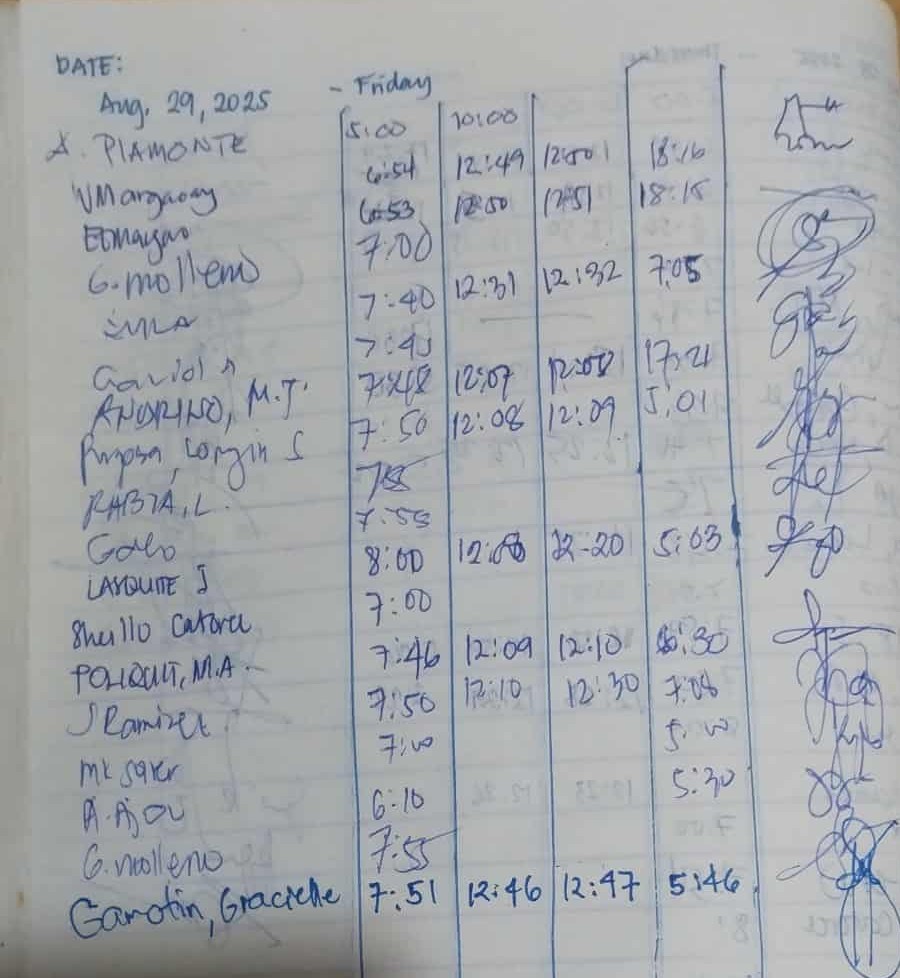 DATE:
Aug. 29, 2025 - Friday
A. PIAMONTE 5:00 10:00
VMargaoay 6:54 12:49 12:50 18:16
6:53 12:50 12:51 18:15
G. molleno 7:00
7:40 12:31 12:32 7:05
7:45
ANDRINO, M.J. 7:48 12:07 12:08 17:21
7:50 12:08 12:09 5:01
RABIA, L. 755
Galo 7:55
LAYQUITE J 8:00 12:20 5:03
Shello Catora 7:00
POLIQUIT, M.A. 7:46 12:09 12:10 6:30
J Ramirez 7:50 12:10 12:30 7:08
7:00 5:00
A. AJOU 6:10 5:30
G. molleno 7:55
Garotin, Gracielle 7:51 12:46 12:47 5:46